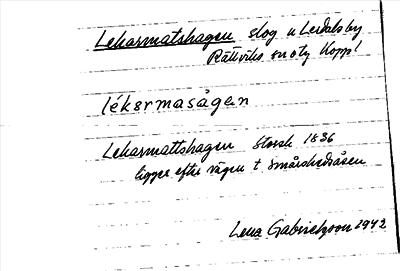 Lekarmatshagen slog u Lerdalsby
Rättviks sn oty Kopp l
lékarmasågen
Lekarmattshagen Storsk 1836
ligger efter vägen t
Lena Gabrielsson 1942